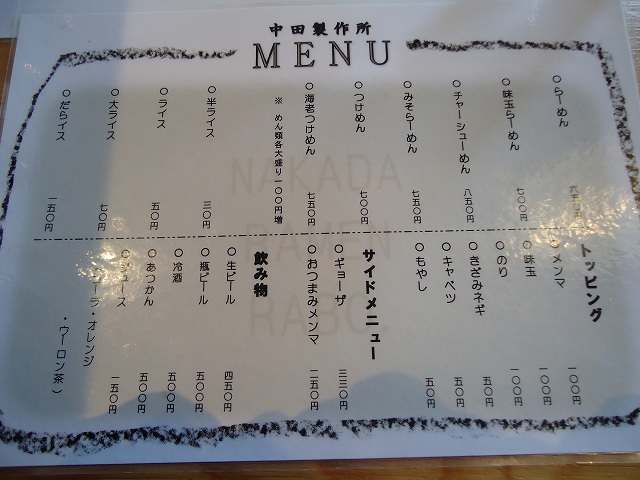 中田製作所
MENU
○らーめん
○味玉らーめん 七〇〇円
○チャーシューめん 八五〇円
○みそらーめん 七五〇円
○つけめん 七〇〇円
○海老つけめん 七五〇円
※ めん類各大盛り一〇〇円増
○半ライス 三〇円
○ライス 五〇円
○大ライス 七〇円
○だらイス 一五〇円
トッピング
○メンマ 一〇〇円
○味玉 一〇〇円
○のり 一〇〇円
○きざみネギ 五〇円
○キャベツ 五〇円
○もやし 五〇円
サイドメニュー
○ギョーザ 三三〇円
○おつまみメンマ 一五〇円
飲み物
○生ビール 四五〇円
○瓶ビール 五〇〇円
○冷酒 五〇〇円
○あつかん 五〇〇円
○ジュース 一五〇円
ーラ・オレンジ
・ウーロン茶）
NAKADA
RAMEN
RABO.